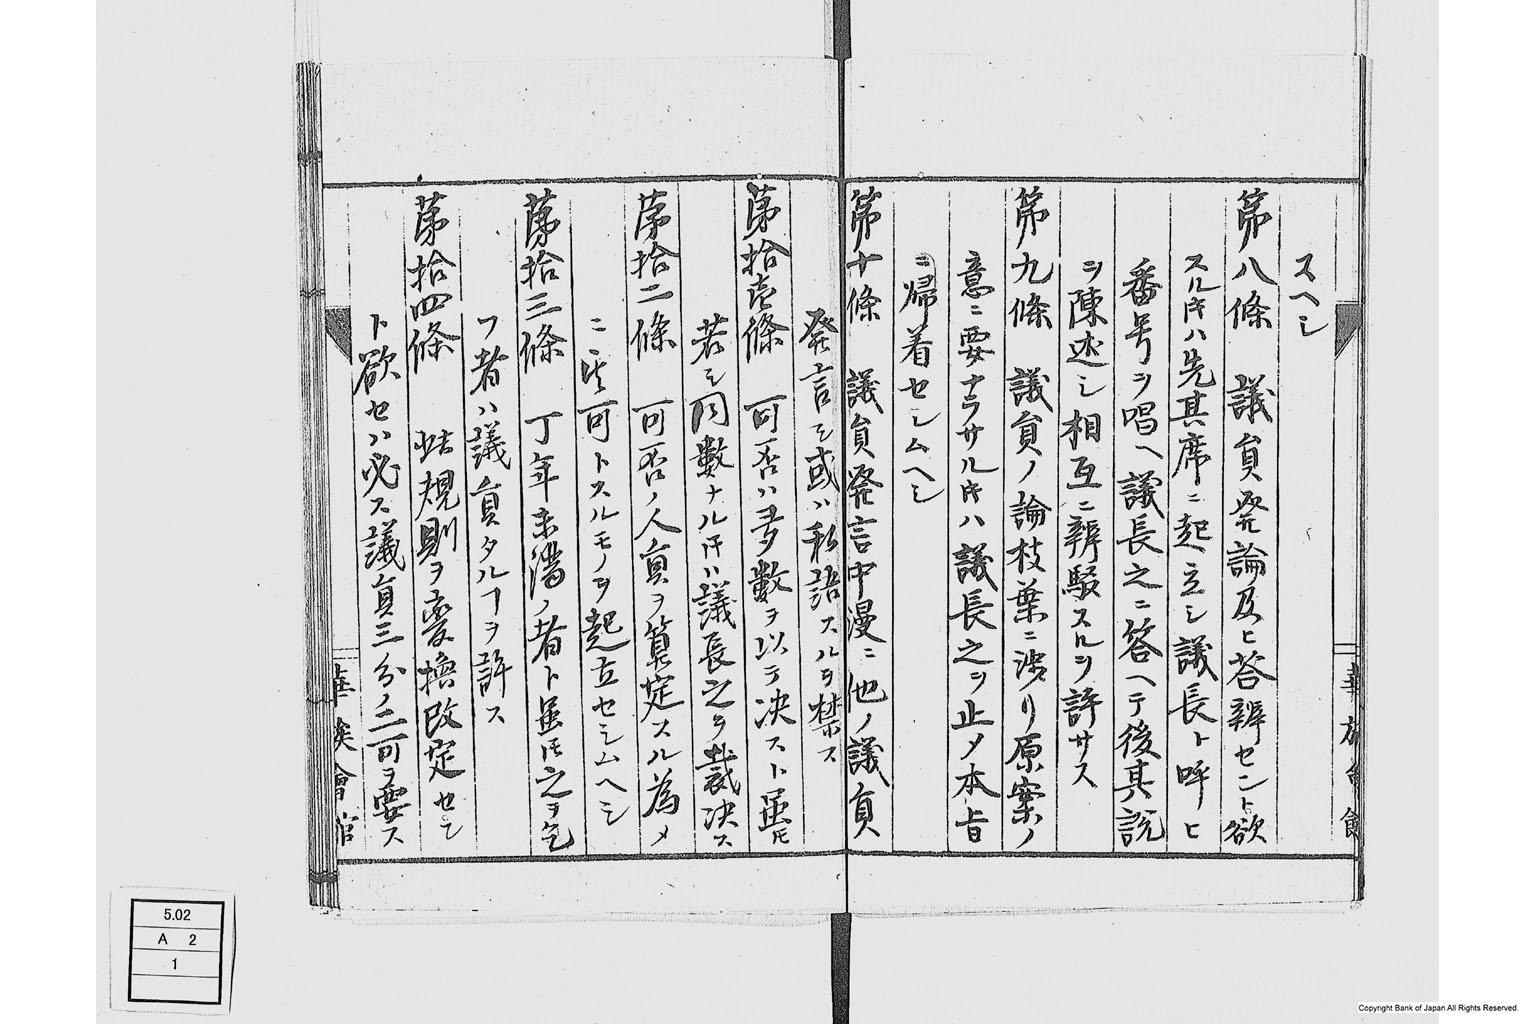 スヘシ
第八條 議員発論及ヒ答辨セント欲
スル𪜈ハ先其席ニ起立シ議長ト呼ヒ
番号ヲ唱ヘ議長之ニ答ヘテ後其説
ヲ陳述シ相互ニ辨駁スルヲ許サス
第九條 議員ノ論枝葉ニ渉リ原案ノ
意ニ要ナラサル𪜈ハ議長之ヲ止メ本旨
ニ帰着セシムヘシ
第十條 議員発言中漫ニ他ノ議員
発言シ或ハ私語スルヲ禁ス
第拾壱條 可否ハ多数ヲ以テ决スト雖𪜈
若シ同数ナル𪜈ハ議長之ヲ裁决ス
第拾二條 可否ノ人員ヲ算定スル為メ
ニ其可トスルモノヲ起立セシムヘシ
第拾三條 丁年未満ノ者ト雖𪜈之ヲ乞
フ者ハ議員タルヿヲ許ス
第拾四條 此規則ヲ変換改定セン
ト欲セハ必ス議員三分ノ二可ヲ要ス
華族會館
華族會館
5.02
A 2
1
Copyright Bank of Japan All Rights Reserved.